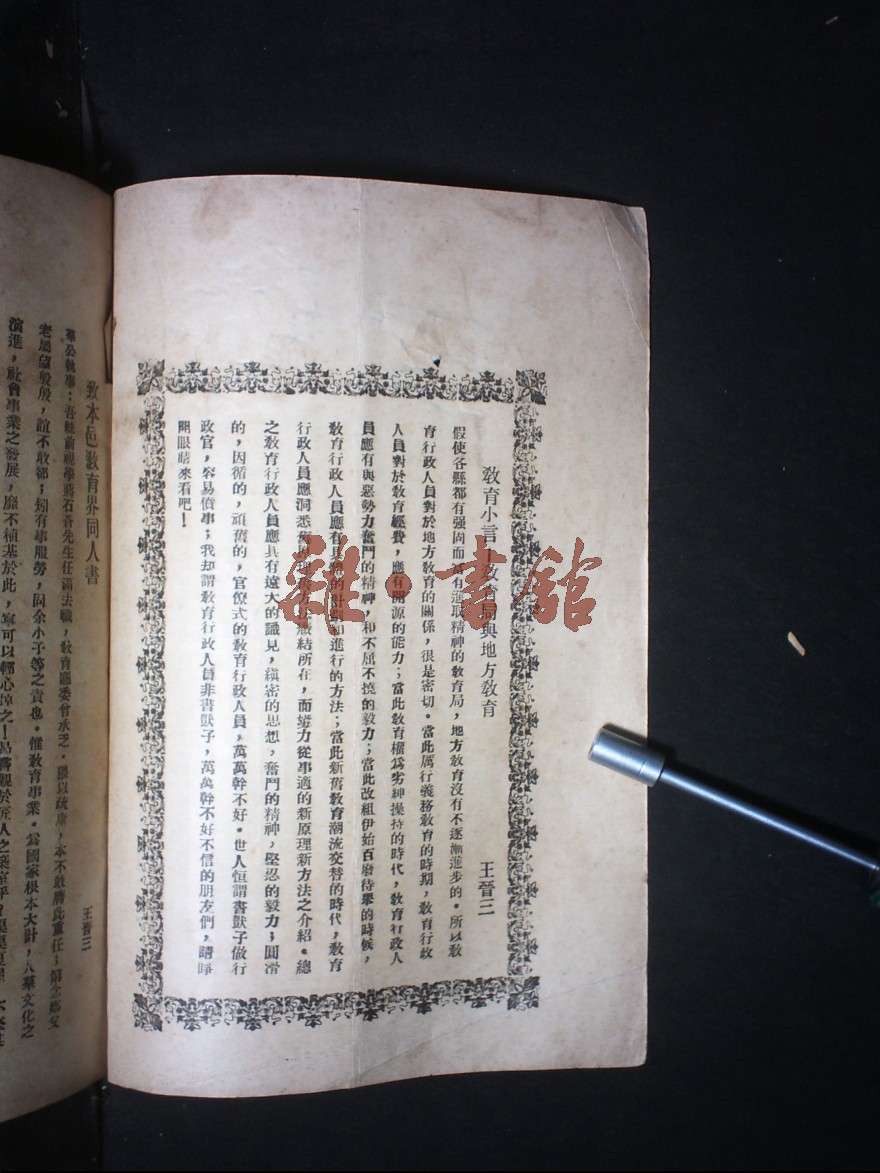 教育小言—教育局與地方教育
王晉三
假使各縣都有强固而富有進取精神的教育局，地方教育沒有不逐漸進步的。所以教
育行政人員對於地方教育的關係，很是密切。當此厲行義務教育的時期，教育行政
人員對於教育經費，應有開源的能力；當此教育權爲劣紳操持的時代，教育行政人
員應有與惡勢力奮鬥的精神，和不屈不撓的毅力；當此改組伊始百廢待舉的時候，
教育行政人員應有具體的計劃和進行的方法；當此新舊教育潮流交替的時代，教育
行政人員應洞悉舊原理舊方法癥結所在，而努力從事適的新原理新方法之介紹。總
之教育行政人員應具有遠大的識見，縝密的思想，奮鬥的精神，堅忍的毅力；圓滑
的，因循的，頑舊的，官僚式的教育行政人員，萬萬幹不好。世人恒謂書獃子做行
政官，容易僨事；我却謂教育行政人員非書獃子，萬萬幹不好不信的朋友們，請睜
開眼睛來看吧！
致本邑教育界同人書
王晉三
羣公執事：吾縣前視學蔣石音先生任滿法職，教育廳委曾承乏。猥以疏庸，本不敢膺此重任；第念鄉父
老屬望殷殷，誼不敢卻；矧有事服勞，固余小子等之責也。惟教育事業。爲國家根本大計，人羣文化之
演進，社會事業之發展，靡不植基於此，寧可以輕心掉之！
雜·書館